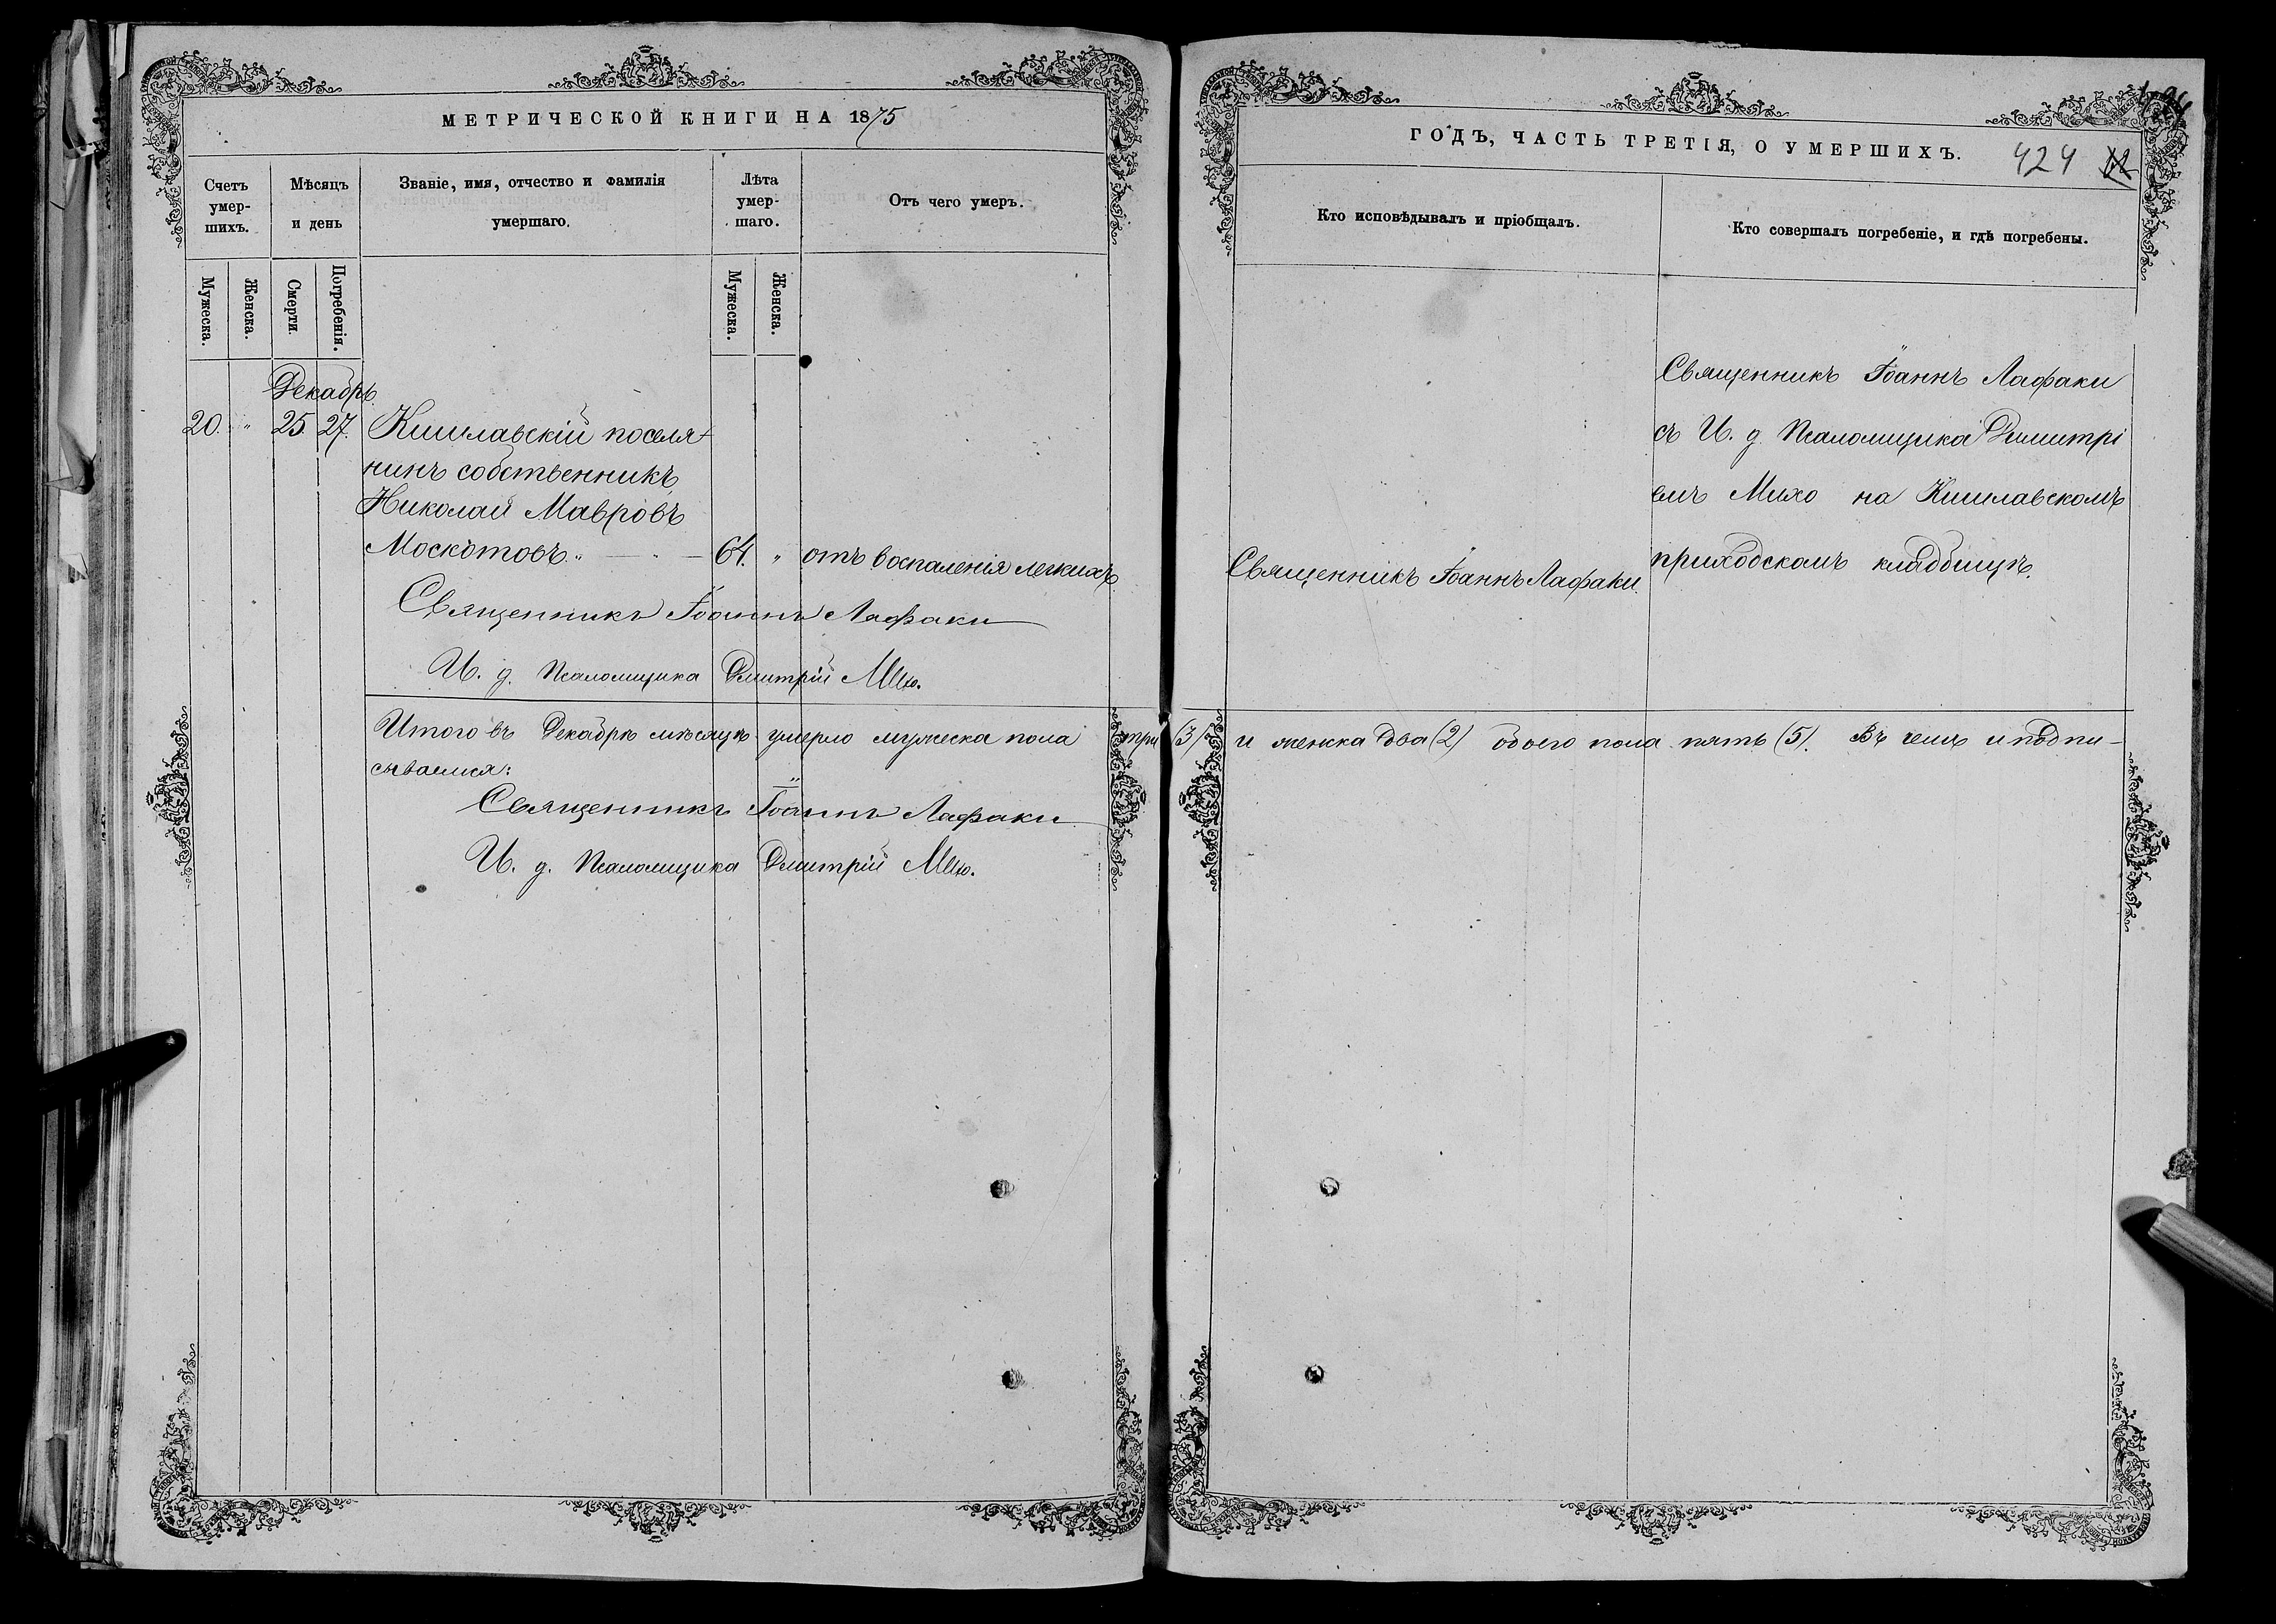 МЕТРИЧЕСКОЙ КНИГИ НА 1875
Счетъ умер-шихъ.
Мѣсяцъ и день
Званіе, имя, отчество и фамилія умершаго.
Лѣта умер-шаго.
Отъ чего умеръ.
Мужеска.
Женска.
Смерти.
Погребенія.
Мужеска.
Женска.
Декабрь.
20. " 25. 27. Кишлавскій поселя-
нинъ собственникъ
Николай Мавровъ
Москотовъ. " — " — 64. " отъ воспаленія легкихъ.
Священникъ Іоаннъ Лафаки
И. д. Псаломщика Дмитрій Михо.
Итого въ Декабрѣ мѣсяцѣ умерло мужеска пола три
сываемся:
Священникъ Іоаннъ Лафаки
И. д. Псаломщика Дмитрій Михо.
ГОДЪ, ЧАСТЬ ТРЕТІЯ, О УМЕРШИХЪ.
424
Кто исповѣдывалъ и пріобщалъ.
Кто совершалъ погребеніе, и гдѣ погребены.
Священникъ Іоаннъ Лафаки
съ И. д. Псаломщика Димитрі
емъ Михо на Кишлавскомъ
приходскомъ кладбищѣ.
Священникъ Іоаннъ Лафаки.
(3) и женска два (2) обоего пола пять (5). Въ чемъ и подпи-